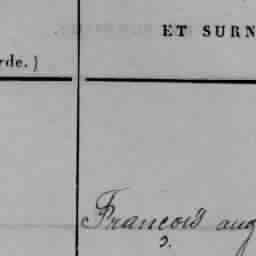 ET SURN
rde. )
François aug